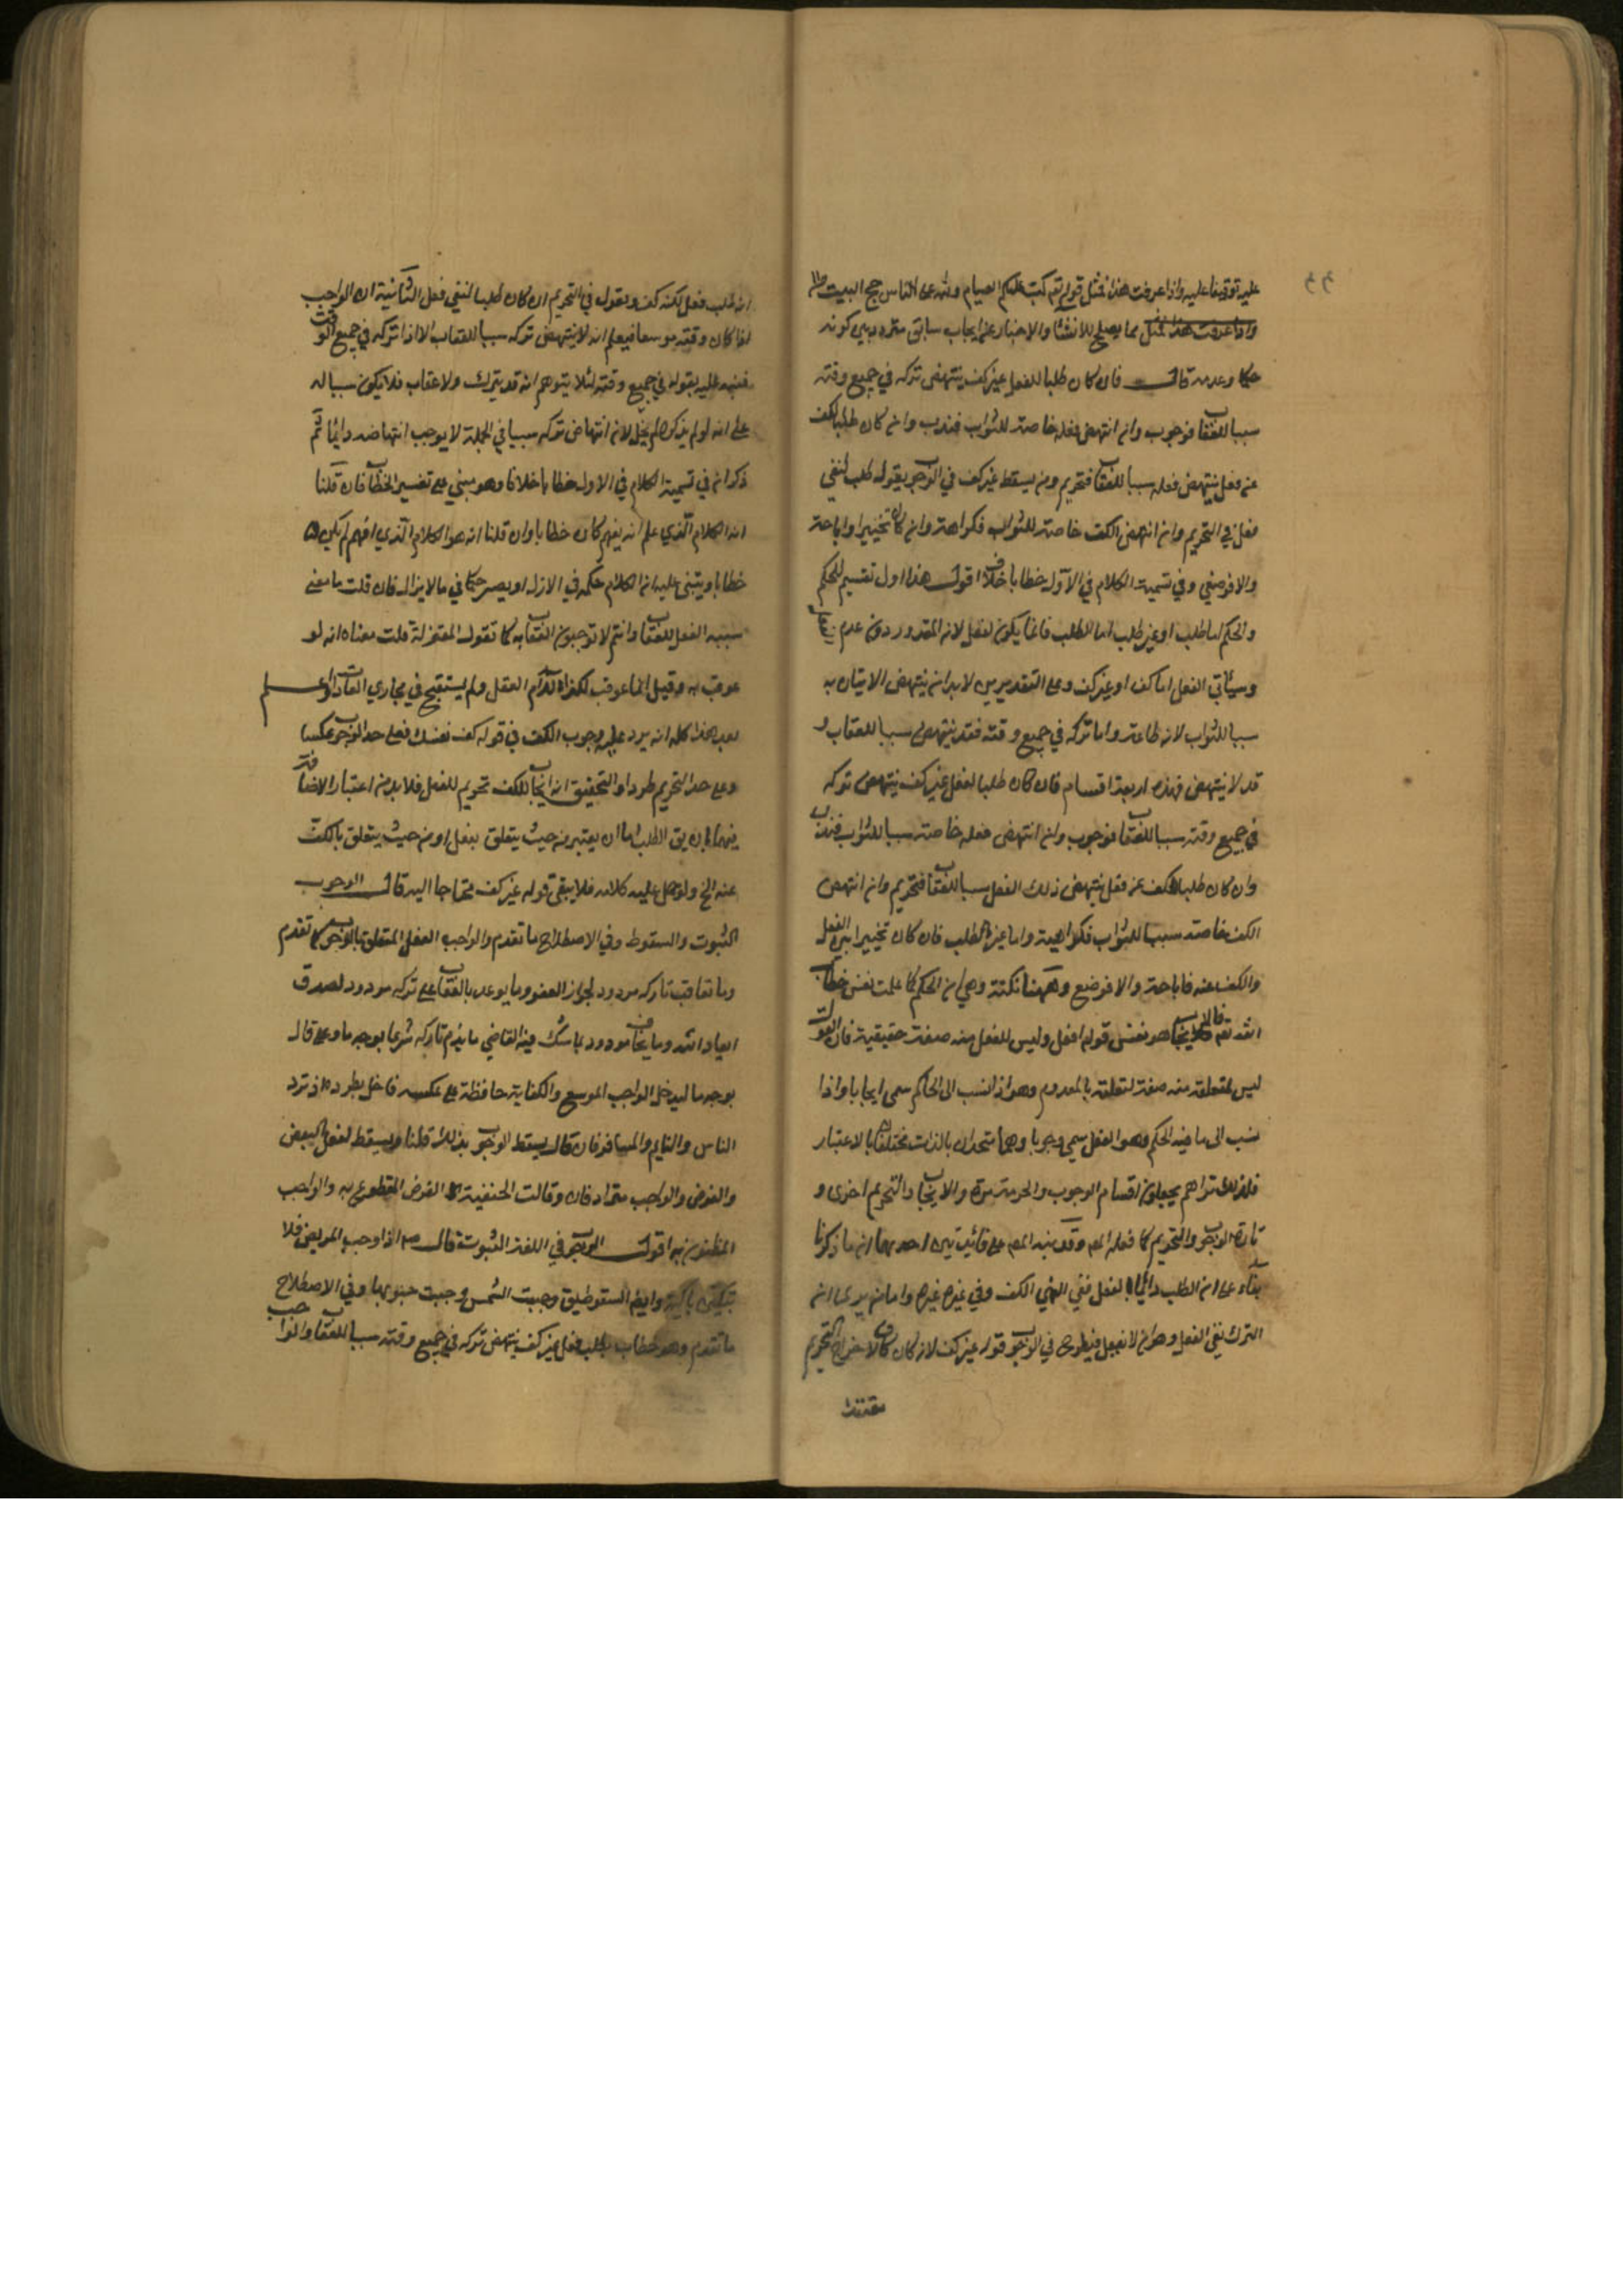 عليه توقفا عليه واذا عرفت هذا فمثل قوله تعه كتب عليكم الصيام ولله على الناس حج البيت
واذا عرفت هذا فمثل مما يصلح للانشا والاخبار عن ايجاب سابق متردد بين كونه
حكما وعدمه قال فان كان طلبا للفعل غير كف ينتهض تركه في جميع وقته
سببا للعقاب فوجوب وان انتهض فعله خاصة للثواب فندب وان كان طلبا لكف
عن فعل ينتهض فعله سببا للعقاب فتحريم ومن يسقط غير كف في الوجوب يقول طلب لنفي
فعل في التحريم وان انتهض الكف خاصة للثواب فكراهة وان كان تخييرا واباحة
والا فوضعي وفي تسمية الكلام في الاول خطابا خلاف اقول هذا اول تقسيم للحكم
والحكم اما طلب او غير طلب اما الطلب فانما يكون لفعل لانه المقدور دون عدم الفعل
وسيأتي الفعل اما كف او غير كف وعلى التقديرين لا بد ان ينتهض الاتيان به
سببا للثواب لانه طاعة واما تركه في جميع وقته فقد ينتهض سببا للعقاب و
قد لا ينتهض فهذه اربعة اقسام فان كان طلبا لفعل غير كف ينتهض تركه
في جميع وقته سببا للعقاب فوجوب وان انتهض فعله خاصة سببا للثواب فندب
وان كان طلبا لكف عن فعل ينتهض ذلك الفعل سببا للعقاب فتحريم وان انتهض
الكف خاصة سببا للثواب فكراهية واما غير الطلب فان كان تخييرا بين الفعل
والكف عنه فاباحة والا فوضع وههنا نكتة وهي ان الحكم كما علمت نفس خطاب
الله تعه فالايجاب هو نفس قوله افعل وليس للفعل منه صفة حقيقية فان القول
ليس لمتعلقه منه صفة لتعلقه بالمعدوم وهو اذا نسب الى الحاكم سمي ايجابا واذا
نسب الى ما فيه الحكم وهو الفعل سمي وجوبا وهما متحدان بالذات مختلفان بالاعتبار
فلذلك تراهم يجعلون اقسام الوجوب والحرمة مرة والايجاب والتحريم اخرى و
تارة الوجوب والتحريم كما فعله المص وقد نبه المص على احديهما ان ما ذكرنا
بناء على ان الطلب دائما لفعل ففي النهي الكف وفي غيره غيره واما من يرى ان
الترك نفي الفعل وهو ان لا يفعل فيطرح في الوجوب قوله غير كف لانه كان لاخراج التحريم
انه طلب فعل لكنه كف ويقول في التحريم ان كان طلبا لنفي فعل الثانية ان الواجب
اذا كان وقته موسعا فيعلم انه لا ينتهض تركه سببا للعقاب الا اذا تركه في جميع الوقت
فنبه عليه بقوله في جميع وقته لئلا يتوهم انه قد يترك ولا عقاب فلا يكون سببا له
على انه لو لم يذكره لم يخل لان انتهاض تركه سببا في الجملة لا يوجب انتهاضه دائما ثم
ذكر ان في تسمية الكلام في الاول خطابا خلافا وهو مبني على تفسير الخطاب فان قلنا
انه الكلام الذي علم انه يفهم كان خطابا وان قلنا انه هو الكلام الذي افهم لم يكن
خطابا ويبتني عليه ان الكلام حكم في الازل او يصير حكما في ما لا يزال فان قلت ما معنى
سببه الفعل للعقاب وانتم لا توجبون العقاب به كما تقول المعتزلة قلت معناه انه لو
عوقب به وقيل انما عوقب لكذا لاءم العقل ولم يستقبح في مجاري العادات واعلم
بعد هذا كله انه يرد عليه وجوب الكف في قوله كف نفسك فعلى حد الوجوب عكسا
وعلى حد التحريم طردا والتحقيق انه ايجاب للكف تحريم للفعل فلا بد من اعتبار الاضافة
فيهما بان يق الطلب اما ان يعتبر من حيث يتعلق بفعل او من حيث يتعلق بالكف
عنه الخ ولو حمل عليه كلامه فلا يبقى قوله غير كف محتاجا اليه قال الوجوب
الثبوت والسقوط وفي الاصطلاح ما تقدم والواجب الفعل المتعلق بالوجوب كما تقدم
وما يعاقب تاركه مردود لجواز العفو وما يوعد بالعقاب على تركه مردود لصدق
ايعاد الله وما يخاف مردود بما شك فيه القاضي ما يذم تاركه شرعا بوجه ما وقال
بوجه ما ليدخل الواجب الموسع والكفاية حافظة على عكسه فاخل بطرده اذ ترد
الناس والنايم والمسافر فان قال يسقط الوجوب بذلك قلنا ويسقط لفعل البعض
والفرض والواجب مترادفان وقالت الحنفية الفرض المقطوع به والواجب
المظنون به اقول الوجوب في اللغة الثبوت قال صم اذا وجب المريض فلا
تبكين باكية وايضا السقوط يق وجبت الشمس وجبت جنوبها وفي الاصطلاح
ما تقدم وهو خطاب بطلب فعل غير كف ينتهض تركه في جميع وقته سببا للعقاب والواجب